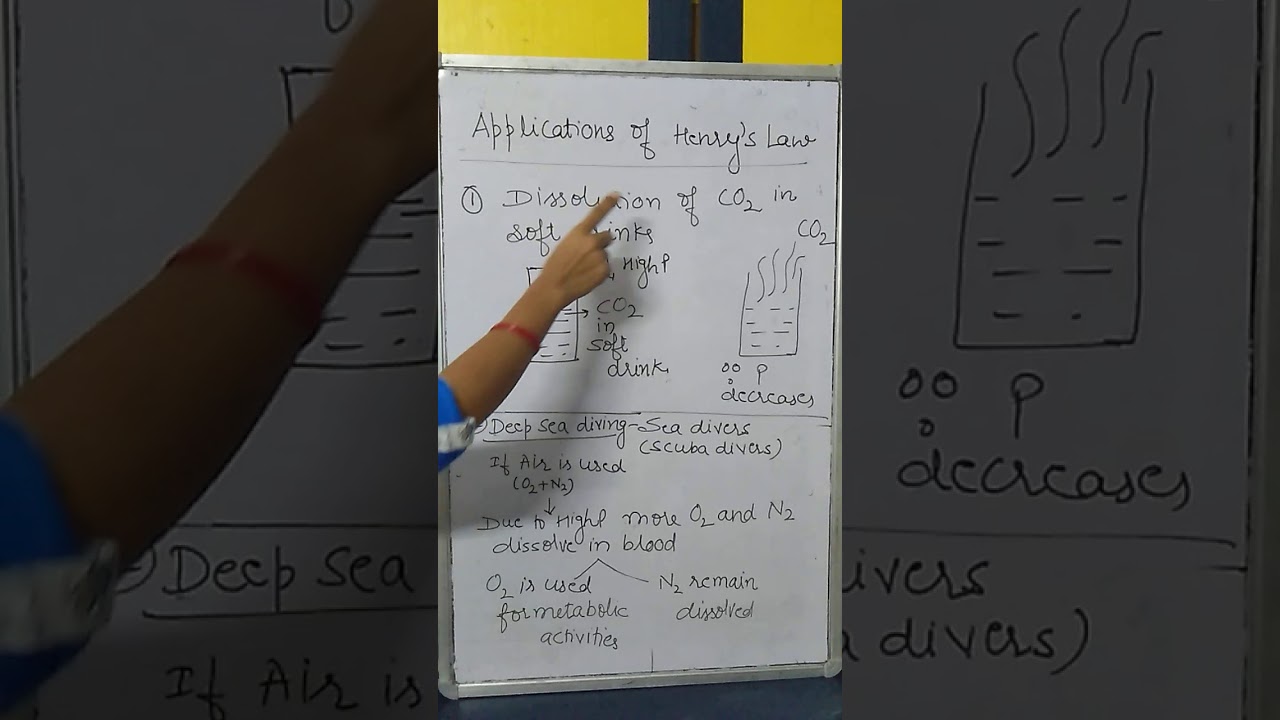 Applications of Henry's Law
① Dissolution of CO2 in
soft drinks
CO2
High P
→ CO2
in
soft
drink
P
decreases
Deep sea diving - Sea divers
(Scuba divers)
If Air is used
(O2+N2)
↓
Due to High P more O2 and N2
dissolve in blood
O2 is used
for metabolic
activities
N2 remain
dissolved